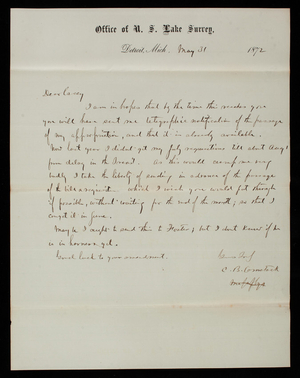 Office of U. S. Lake Survey,
Detroit, Mich. May 31 1872
Dear Casey
I am in hopes that by the time this reaches you
you will have sent me telegraphic notification of the passage
of my appropriation, and that it is already available.
Now last year I did not get my July requisitions till about Aug 1
from delay in the Board. As this would
me
badly I take the liberty of sending in advance of the passage
of the bill a requisition which I wish you would put through
if possible, without waiting for the end of the month; so that I
can get it in June.
May be I ought to send this to Foster; but I don't know if he
is in harness yet.
Good luck to your amendment.
Yours Truly
C. B. Comstock
Maj of Engs